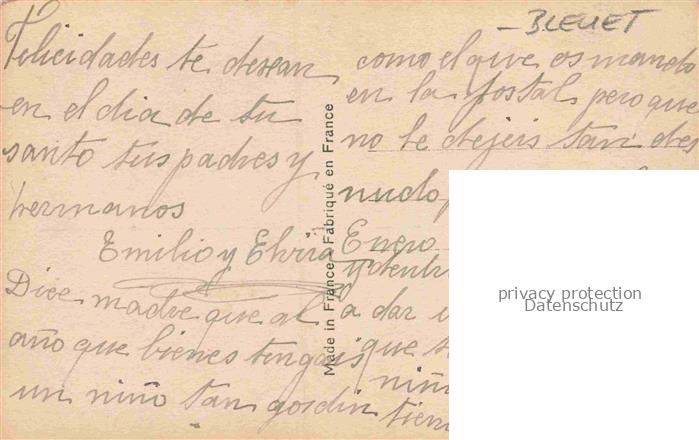 - BLEUET
Felicidades te desean
en el dia de tu
santo tus padres y
hermanos
Emilio y Elvira
Dice madre que al
año que bienes tengais
un niño tan gordin
Made in France - Fabriqué en France
como el que os mando
en la postal, pero que
no le dejeis tan des
nudo,
Enero
y dentr
a dar
que
niñ
tien
privacy protection
Datenschutz